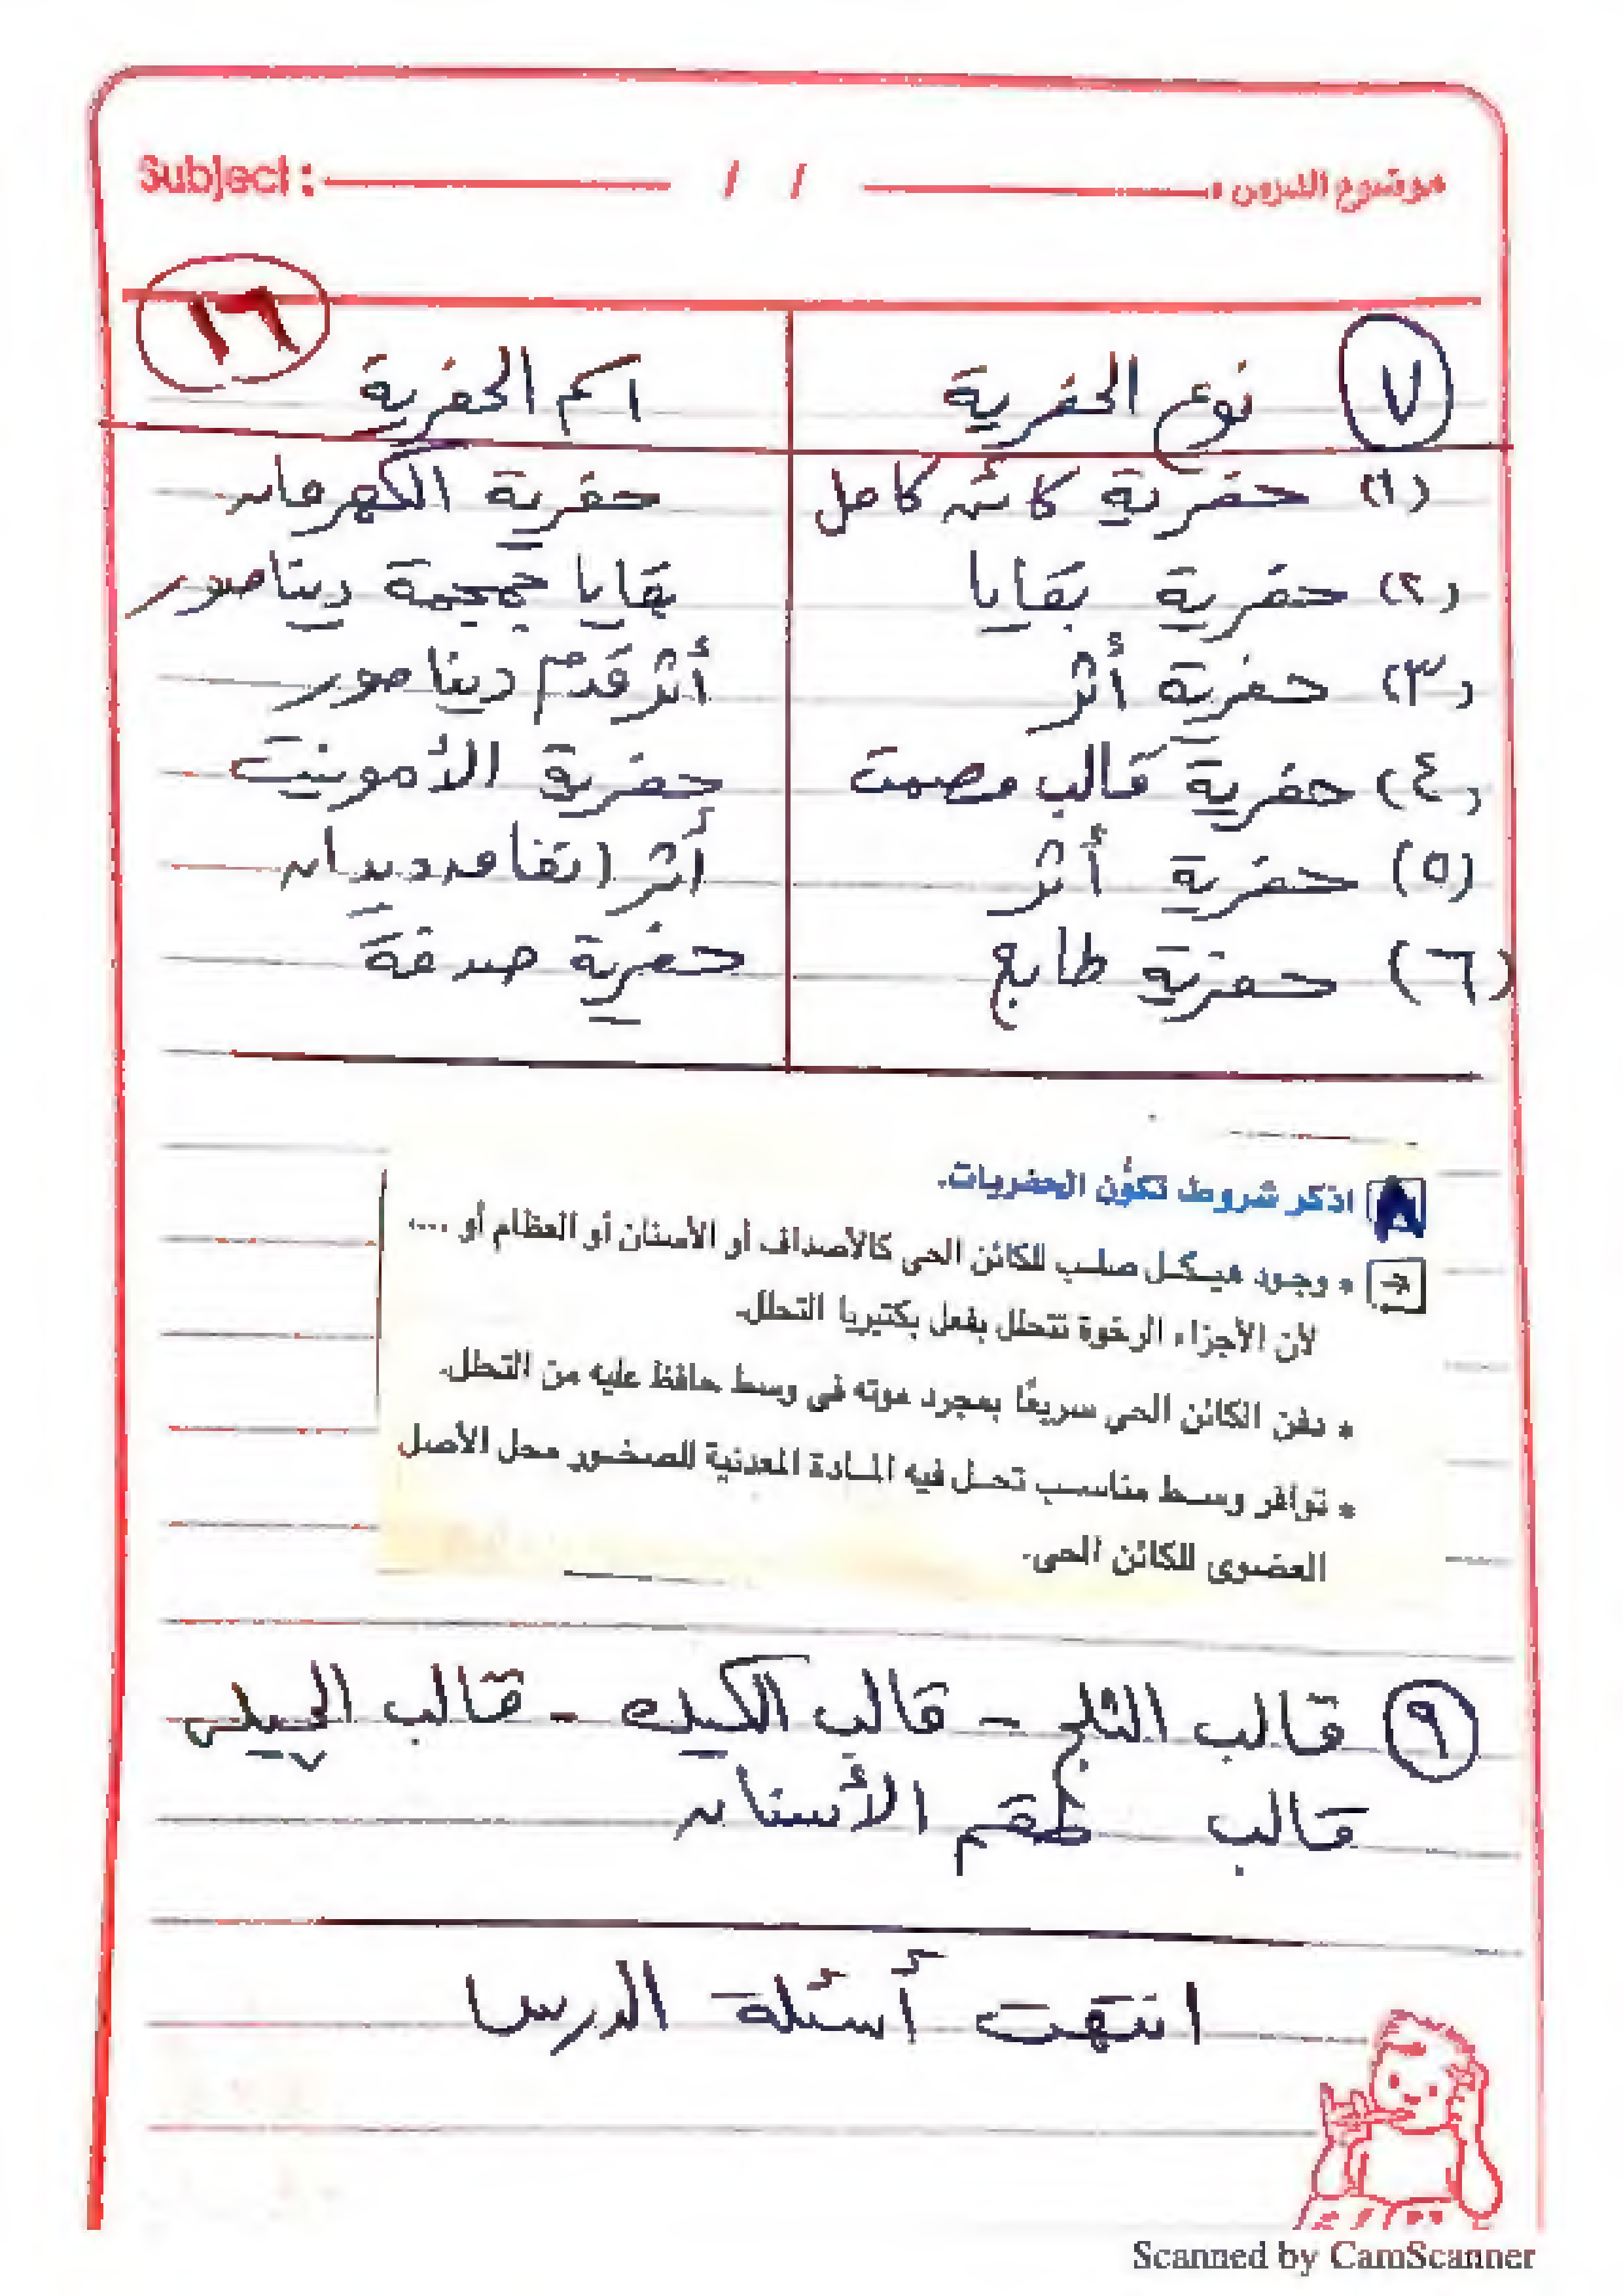 موضوع الدرس : / / Subject :
١٦
٧ نوع الحفرية اسم الحفرية
(١) حفرية كائن كامل حفرية الكهرمان
(٢) حفرية بقايا بقايا جمجمة ديناصور
(٣) حفرية أثر أثر قدم ديناصور
(٤) حفرية قالب مصمت حفرية الأمونيت
(٥) حفرية أثر أثر أنفاق ديدان
(٦) حفرية طابع حفرية صدفة
٨ اذكر شروط تكوُّن الحفريات.
ج * وجود هيكل صلب للكائن الحى كالأصداف أو الأسنان أو العظام أو ....
لأن الأجزاء الرخوة تتحلل بفعل بكتيريا التحلل.
* دفن الكائن الحى سريعًا بمجرد موته فى وسط حافظ عليه من التحلل.
* توافر وسط مناسب تحل فيه المادة المعدنية للصخور محل الأصل
العضوى للكائن الحى.
٩ قالب الثلج - قالب الكيك - قالب الجيلى
قالب طقم الأسنان
انتهت أسئلة الدرس
Scanned by CamScanner